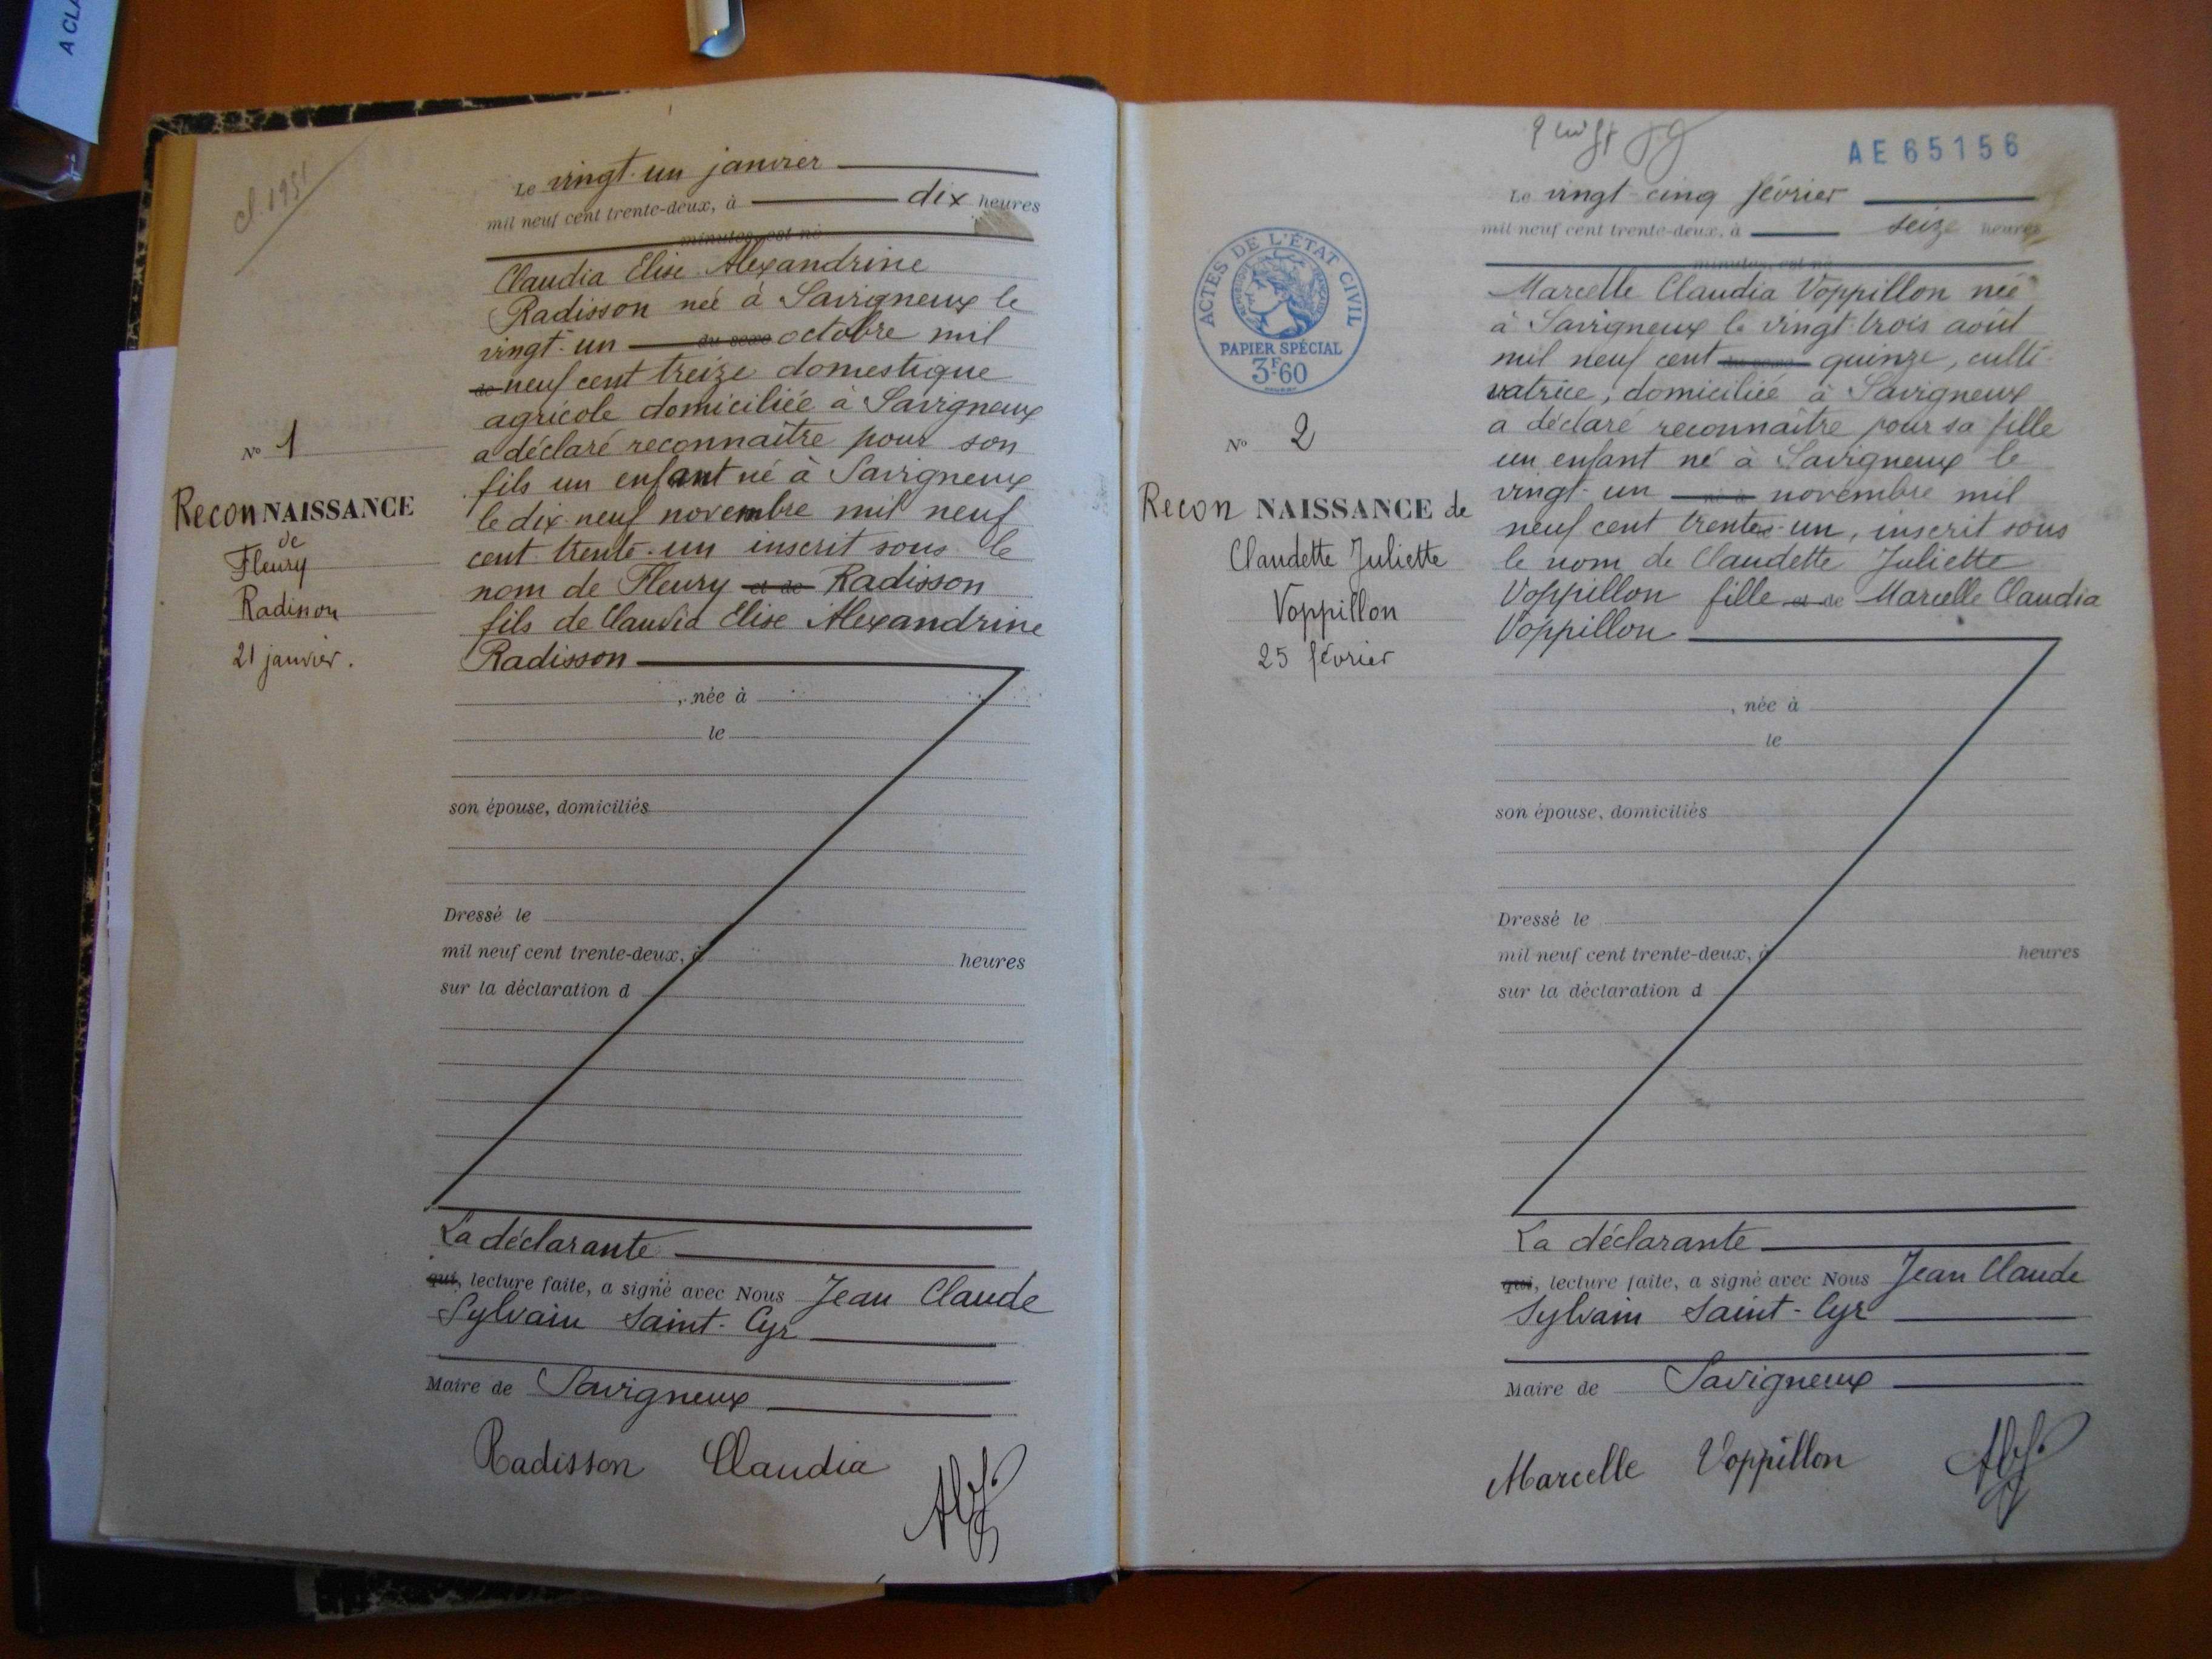 A CLA
cl. 1951
Le vingt-un janvier
mil neuf cent trente-deux, à dix heures
minutes, est né
Claudia Elise Alexandrine
Radisson née à Savigneux le
vingt-un du sexe octobre mil
de neuf cent treize domestique
agricole domiciliée à Savigneux
a déclaré reconnaître pour son
fils un enfant né à Savigneux
le dix-neuf novembre mil neuf
cent trente-un inscrit sous le
nom de Fleury et de Radisson
fils de Claudia Elise Alexandrine
Radisson
, née à
le
son épouse, domiciliés
Dressé le
mil neuf cent trente-deux, à heures
sur la déclaration d
La déclarante
qui, lecture faite, a signé avec Nous Jean Claude
Sylvain Saint-Cyr
Maire de Savigneux
Radisson Claudia
No 1
ReconNAISSANCE
de
Fleury
Radisson
21 janvier.
AE65156
ACTES DE L'ÉTAT CIVIL
PAPIER SPÉCIAL
3F60
No 2
Recon NAISSANCE de
Claudette Juliette
Voppillon
25 février
Le vingt-cinq février
mil neuf cent trente-deux, à seize heures
minutes, est né
Marcelle Claudia Voppillon née
à Savigneux le vingt-trois août
mil neuf cent du sexe quinze, culti-
vatrice, domiciliée à Savigneux
a déclaré reconnaître pour sa fille
un enfant né à Savigneux le
vingt-un né à novembre mil
neuf cent trente-un, inscrit sous
le nom de Claudette Juliette
Voppillon fille et de Marcelle Claudia
Voppillon
, née à
le
son épouse, domiciliés
Dressé le
mil neuf cent trente-deux, à heures
sur la déclaration d
La déclarante
qui, lecture faite, a signé avec Nous Jean Claude
Sylvain Saint-Cyr
Maire de Savigneux
Marcelle Voppillon